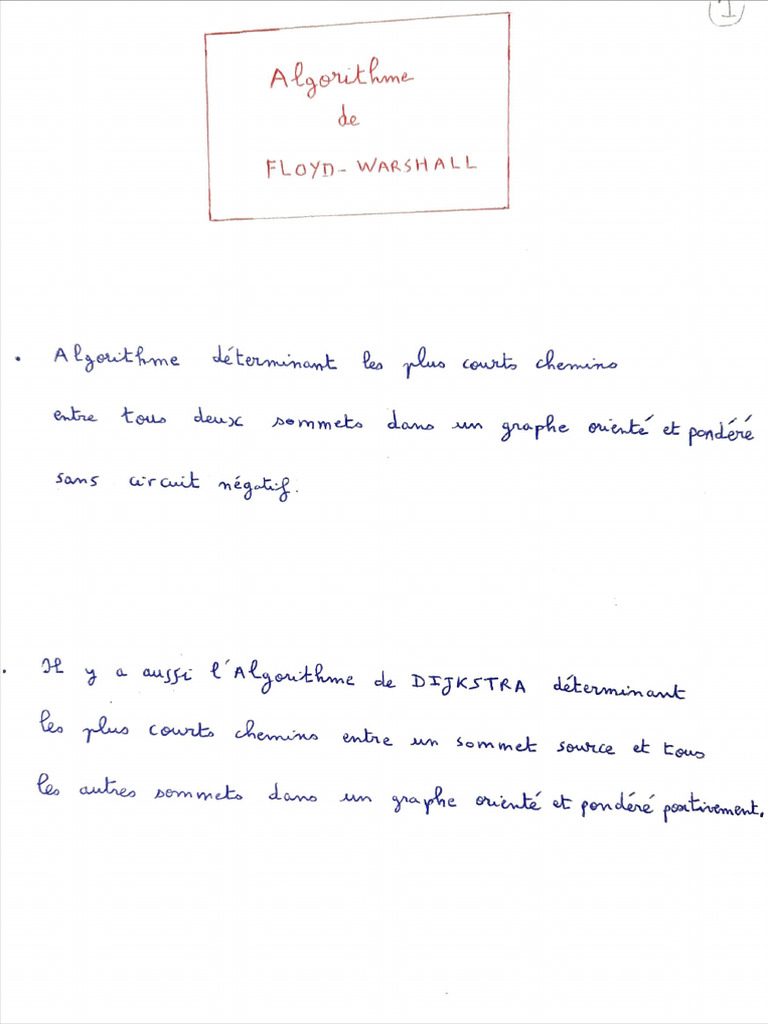 1
Algorithme
de
FLOYD-WARSHALL
. Algorithme déterminant les plus courts chemins
entre tous deux sommets dans un graphe orienté et pondéré
sans circuit négatif.
. Il y a aussi l'Algorithme de DIJKSTRA déterminant
les plus courts chemins entre un sommet source et tous
les autres sommets dans un graphe orienté et pondéré positivement.